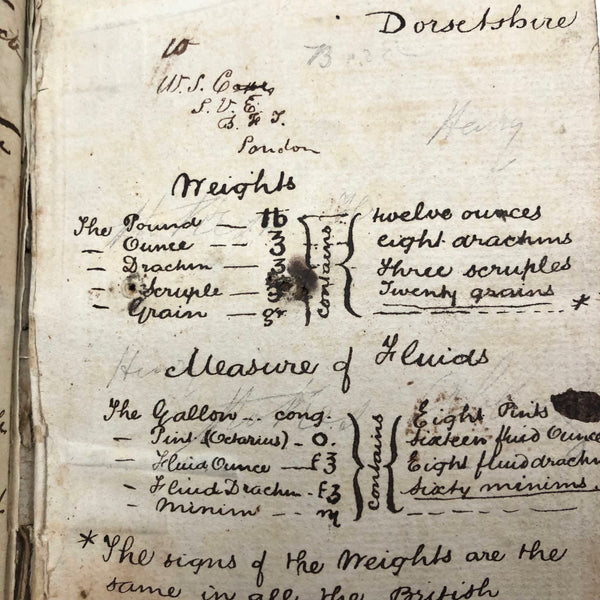 Dorsetshire
W. S.
S. V. E.
London
Henry
Weights
The Pound — ℔ contains twelve ounces
— Ounce — ℥ eight drachms
— Drachm — ʒ Three scruples
— Scruple — ℈ Twenty grains *
— Grain — gr
Measure of Fluids
The Gallon .. cong. contains Eight Pints
— Pint (Octarius) - O. Sixteen fluid Ounce
— Fluid Ounce — f℥ Eight fluid drachm
— Fluid Drachm - fʒ Sixty minims.
— Minim — ♏
* The signs of the Weights are the
same in all the British